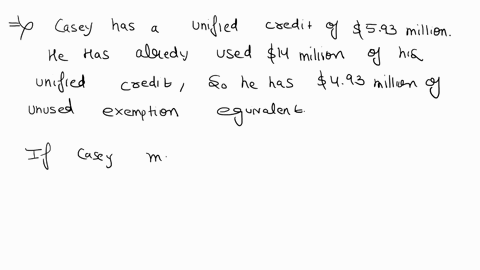 => Casey has a unified credit of $5.93 million.
He Has already used $14 million of his
unified credit, So he has $4.93 million of
unused exemption equivalent.
If Casey m